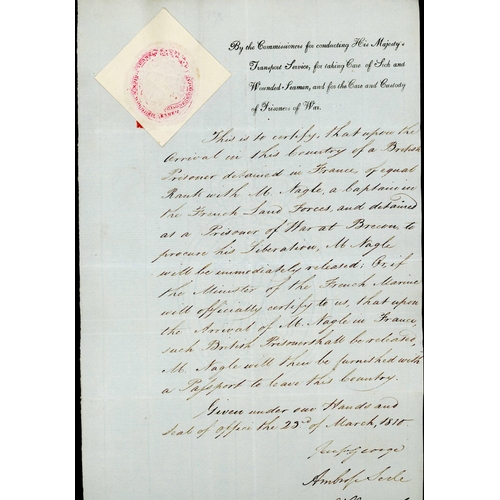 By the Commissioners for conducting His Majesty's
Transport Service, for taking Care of Sick and
Wounded Seamen, and for the Care and Custody
of Prisoners of War.
This is to certify, that upon the
Arrival in this Country of a British
Prisoner detained in France of equal
Rank with M. Nagle, a Captain in
the French Land Forces, and detained
as a Prisoner of War at Brecon, to
procure his Liberation, M. Nagle
will be immediately released; Or, if
the Minister of the French Marine
will officially certify to us, that upon
the Arrival of M. Nagle in France,
such British Prisoner shall be released,
M. Nagle will then be furnished with
a Passport to leave this Country.
Given under our Hands and
Seal of Office the 23d of March, 1810.
George
Ambrose Serle